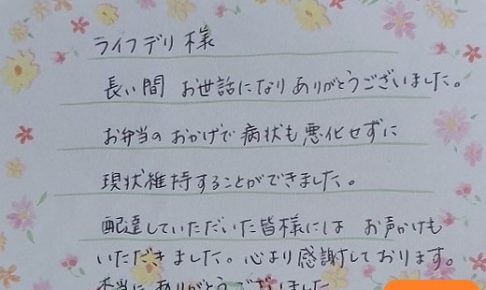 ライフデリ様
長い間 お世話になりありがとうございました。
お弁当のおかげで病状も悪化せずに
現状維持することができました。
配達していただいた皆様には お声かけも
いただきました。心より感謝しております。
本当にありがとうございました